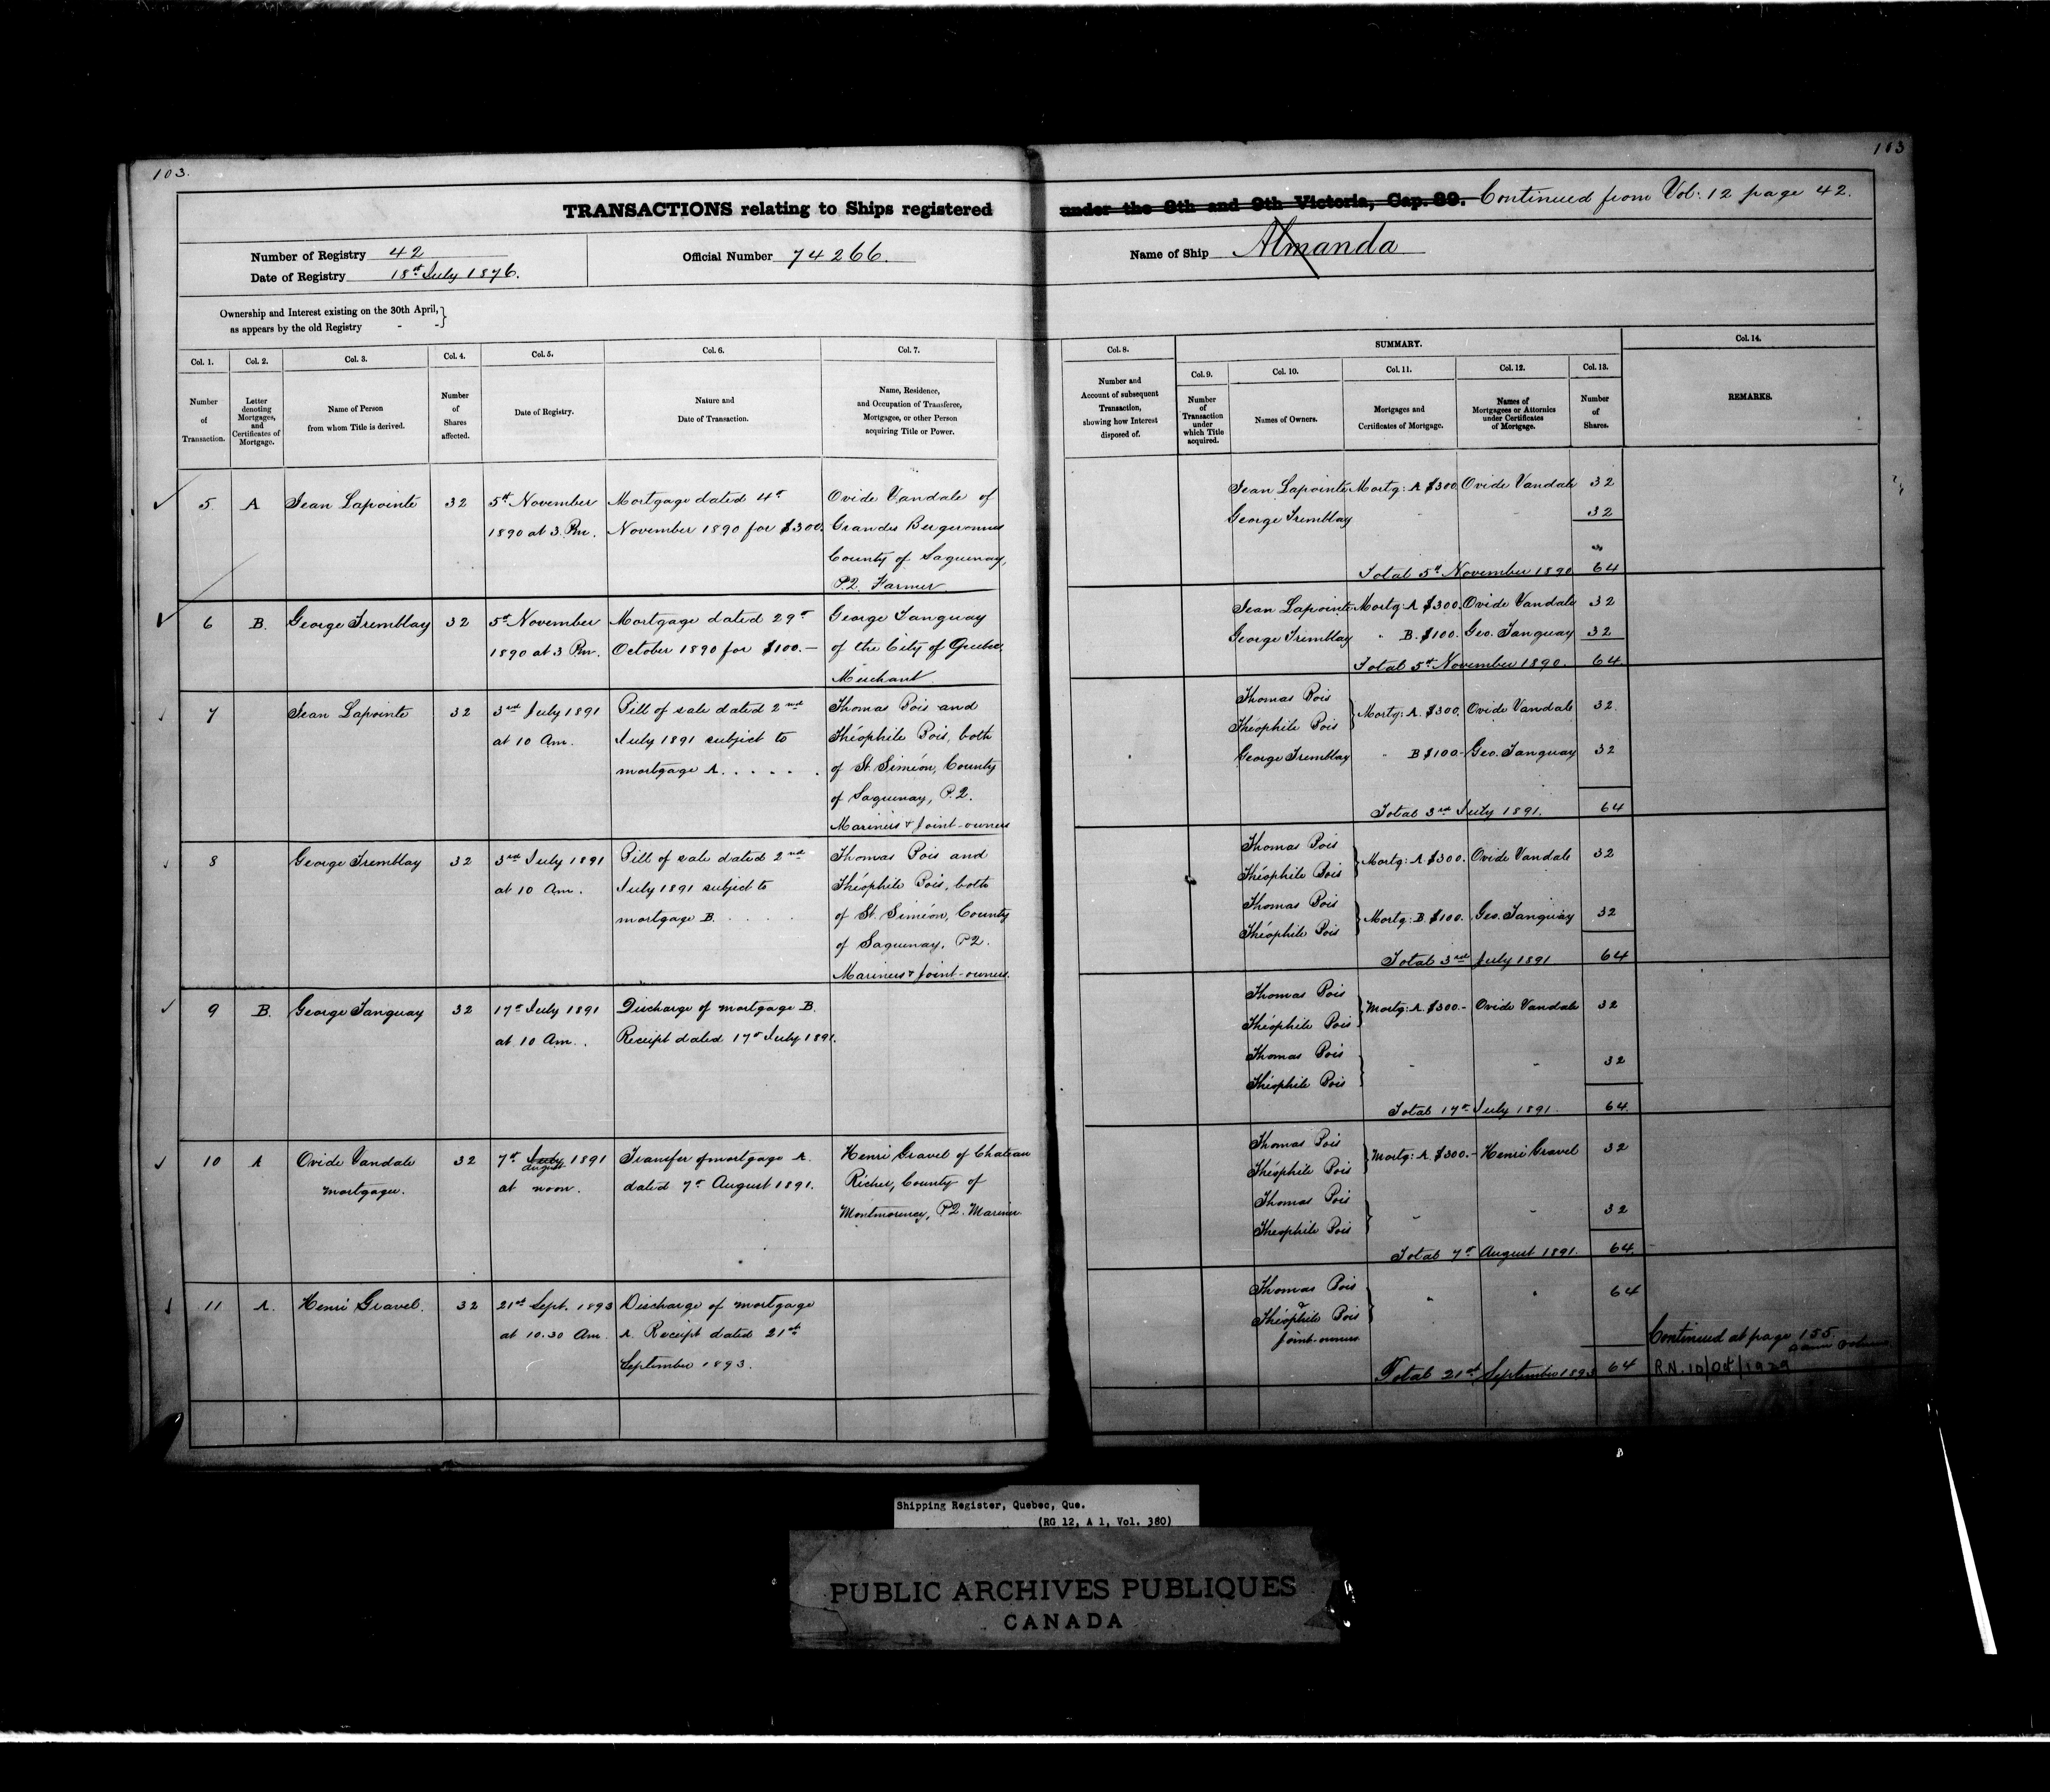 103.
103
TRANSACTIONS relating to Ships registered under the 8th and 9th Victoria, Cap. 89. Continued from Vol: 12 page 42.
Number of Registry 42
Date of Registry 18th July 1876.
Official Number 74266.
Name of Ship Almanda
Ownership and Interest existing on the 30th April,
as appears by the old Registry - -
Col. 1.
Number
of
Transaction.
Col. 2.
Letter
denoting
Mortgages,
and
Certificates of
Mortgage.
Col. 3.
Name of Person
from whom Title is derived.
Col. 4.
Number
of
Shares
affected.
Col. 5.
Date of Registry.
Col. 6.
Nature and
Date of Transaction.
Col. 7.
Name, Residence,
and Occupation of Transferee,
Mortgagee, or other Person
acquiring Title or Power.
Col. 8.
Number and
Account of subsequent
Transaction,
showing how Interest
disposed of.
SUMMARY.
Col. 9.
Number
of
Transaction
under
which Title
acquired.
Col. 10.
Names of Owners.
Col. 11.
Mortgages and
Certificates of Mortgage.
Col. 12.
Names of
Mortgagees or Attornies
under Certificates
of Mortgage.
Col. 13.
Number
of
Shares.
Col. 14.
REMARKS.
5 A Jean Lapointe 32
5th November
1890 at 3 Pm.
Mortgage dated 4th
November 1890 for $300.
Ovide Vandale of
Grandes Bergeronnes
County of Saguenay,
P.Q. Farmer
Jean Lapointe Mortg: A $300 Ovide Vandale 32
George Tremblay 32
Total 5th November 1890 64
6 B. George Tremblay 32
5th November
1890 at 3 Pm.
Mortgage dated 29th
October 1890 for $100.—
George Tanguay
of the City of Quebec,
Merchant
Jean Lapointe Mortg: A $300. Ovide Vandale 32
George Tremblay " B. $100. Geo. Tanguay 32
Total 5th November 1890. 64
7 Jean Lapointe 32
3rd July 1891
at 10 Am.
Bill of sale dated 2nd
July 1891 subject to
mortgage A. . . . . .
Thomas Bois and
Théophile Bois, both
of St. Siméon, County
of Saguenay, P.Q.
Mariners & Joint-owners
Thomas Bois
Théophile Bois
Mortg: A. $300. Ovide Vandale 32
George Tremblay " B $100- Geo. Tanguay 32
Total 3rd July 1891. 64
8 George Tremblay 32
3rd July 1891
at 10 Am.
Bill of sale dated 2nd
July 1891 subject to
mortgage B. . . . .
Thomas Bois and
Théophile Bois, both
of St. Siméon, County
of Saguenay. P.Q.
Mariners & Joint-owners.
Thomas Bois
Théophile Bois
Mortg: A $300. Ovide Vandale 32
Thomas Bois
Théophile Bois
Mortg: B. $100. Geo. Tanguay 32
Total 3rd July 1891 64
9 B. George Tanguay 32
17th July 1891
at 10 Am.
Discharge of mortgage B.
Receipt dated 17th July 1891.
Thomas Bois
Théophile Bois
Mortg: A. $300.- Ovide Vandale 32
Thomas Bois
Théophile Bois
32
Total 17th July 1891. 64
10 A Ovide Vandale 32
mortgagee.
7th July 1891
August
at noon.
Transfer of mortgage A.
dated 7th August 1891.
Henri Gravel of Chateau
Richer, County of
Montmorency, P.Q. Mariner
Thomas Bois
Théophile Bois
Mortg: A. $300.- Henri Gravel 32
Thomas Bois
Théophile Bois
32
Total 7th August 1891. 64
11 A. Henri Gravel. 32
21st Sept. 1893
at 10.30 Am.
Discharge of mortgage
A. Receipt dated 21st
September 1893.
Thomas Bois
&
Théophile Bois
Joint-owners
64
Total 21st September 1893 64
Continued at page 155
same volume
R.N. 10/04/1929
Shipping Register, Quebec, Que.
(RG 12, A 1, Vol. 380)
PUBLIC ARCHIVES PUBLIQUES
CANADA